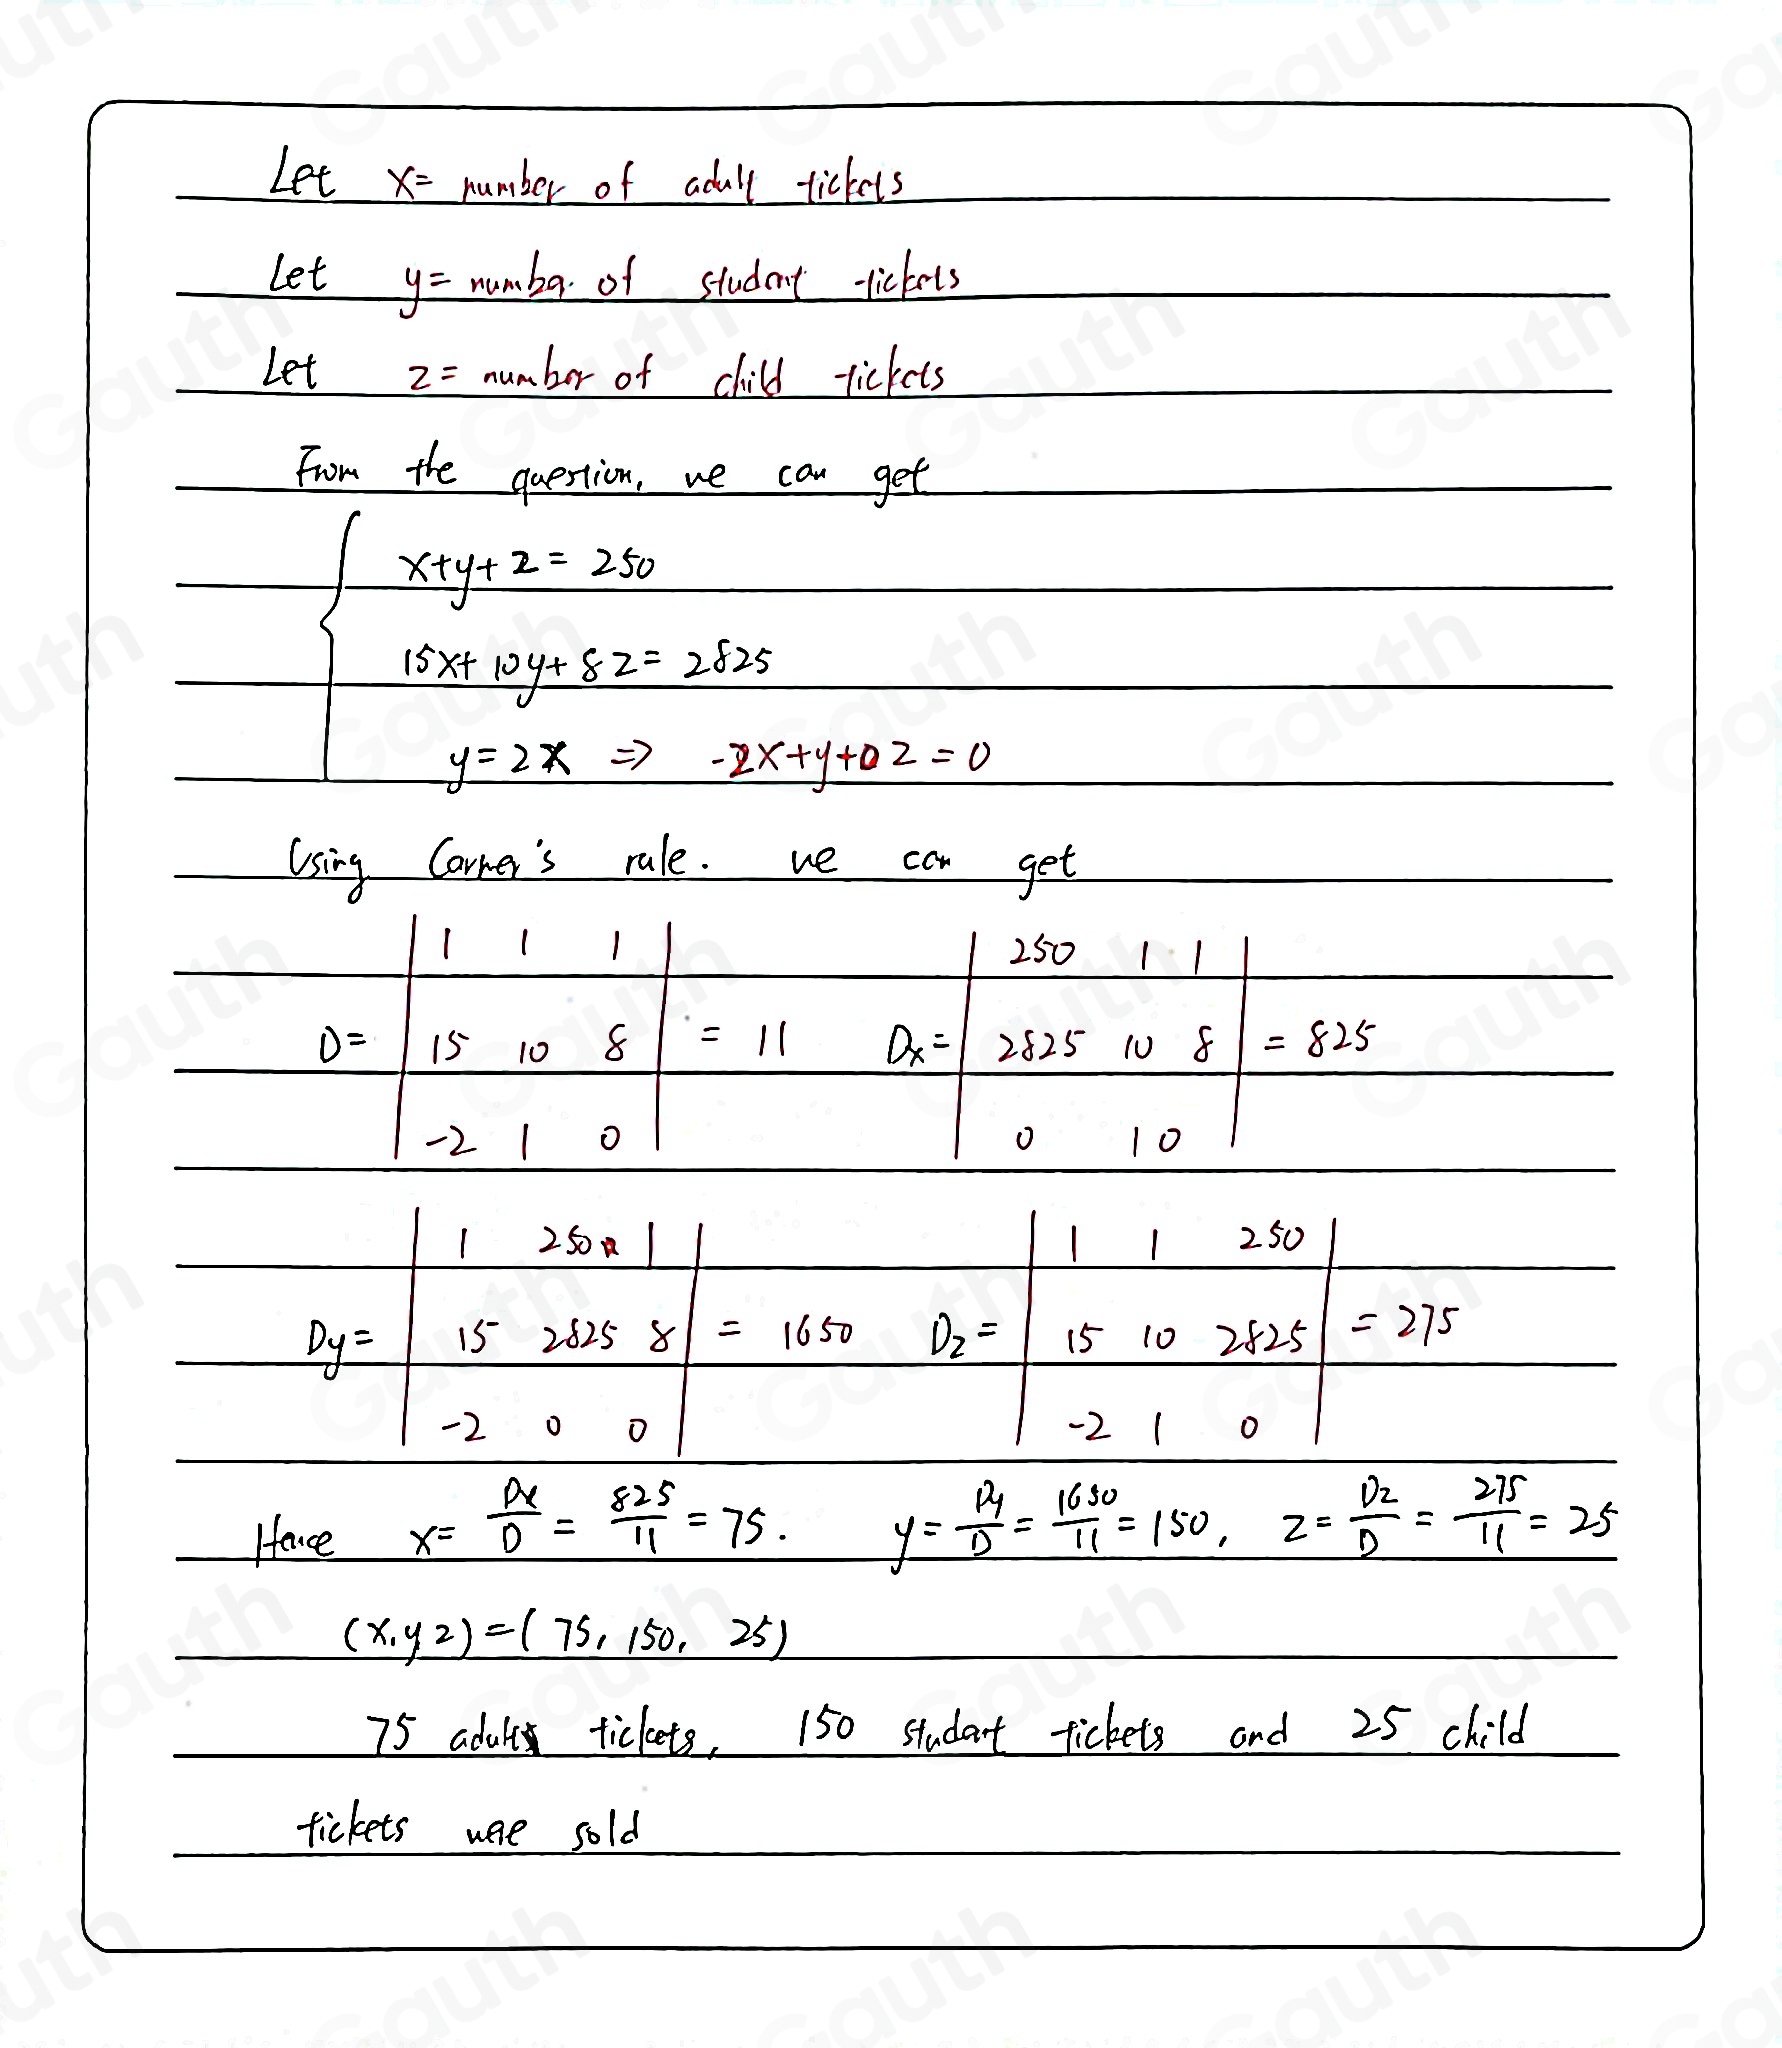 Let x= number of adult tickets
Let y= number of student tickets
Let z= number of child tickets
From the question, we can get
x+y+z= 250
15x+ 10y+ 8z= 2825
y=2x => -2x+y+0z=0
Using Carmer's rule. we can get
1 1 1
250 1 1
D= 15 10 8 = 11 Dx= 2825 10 8 = 825
-2 1 0
0 1 0
1 250 1
1 1 250
Dy= 15 2825 8 = 1650 Dz= 15 10 2825 = 275
-2 0 0
-2 1 0
Hence x= Dx/D = 825/11 = 75. y= Dy/D = 1650/11 = 150, z= Dz/D = 275/11 = 25
(x,y z)=( 75, 150, 25)
75 adult tickets, 150 student tickets and 25 child
tickets were sold
Gauth